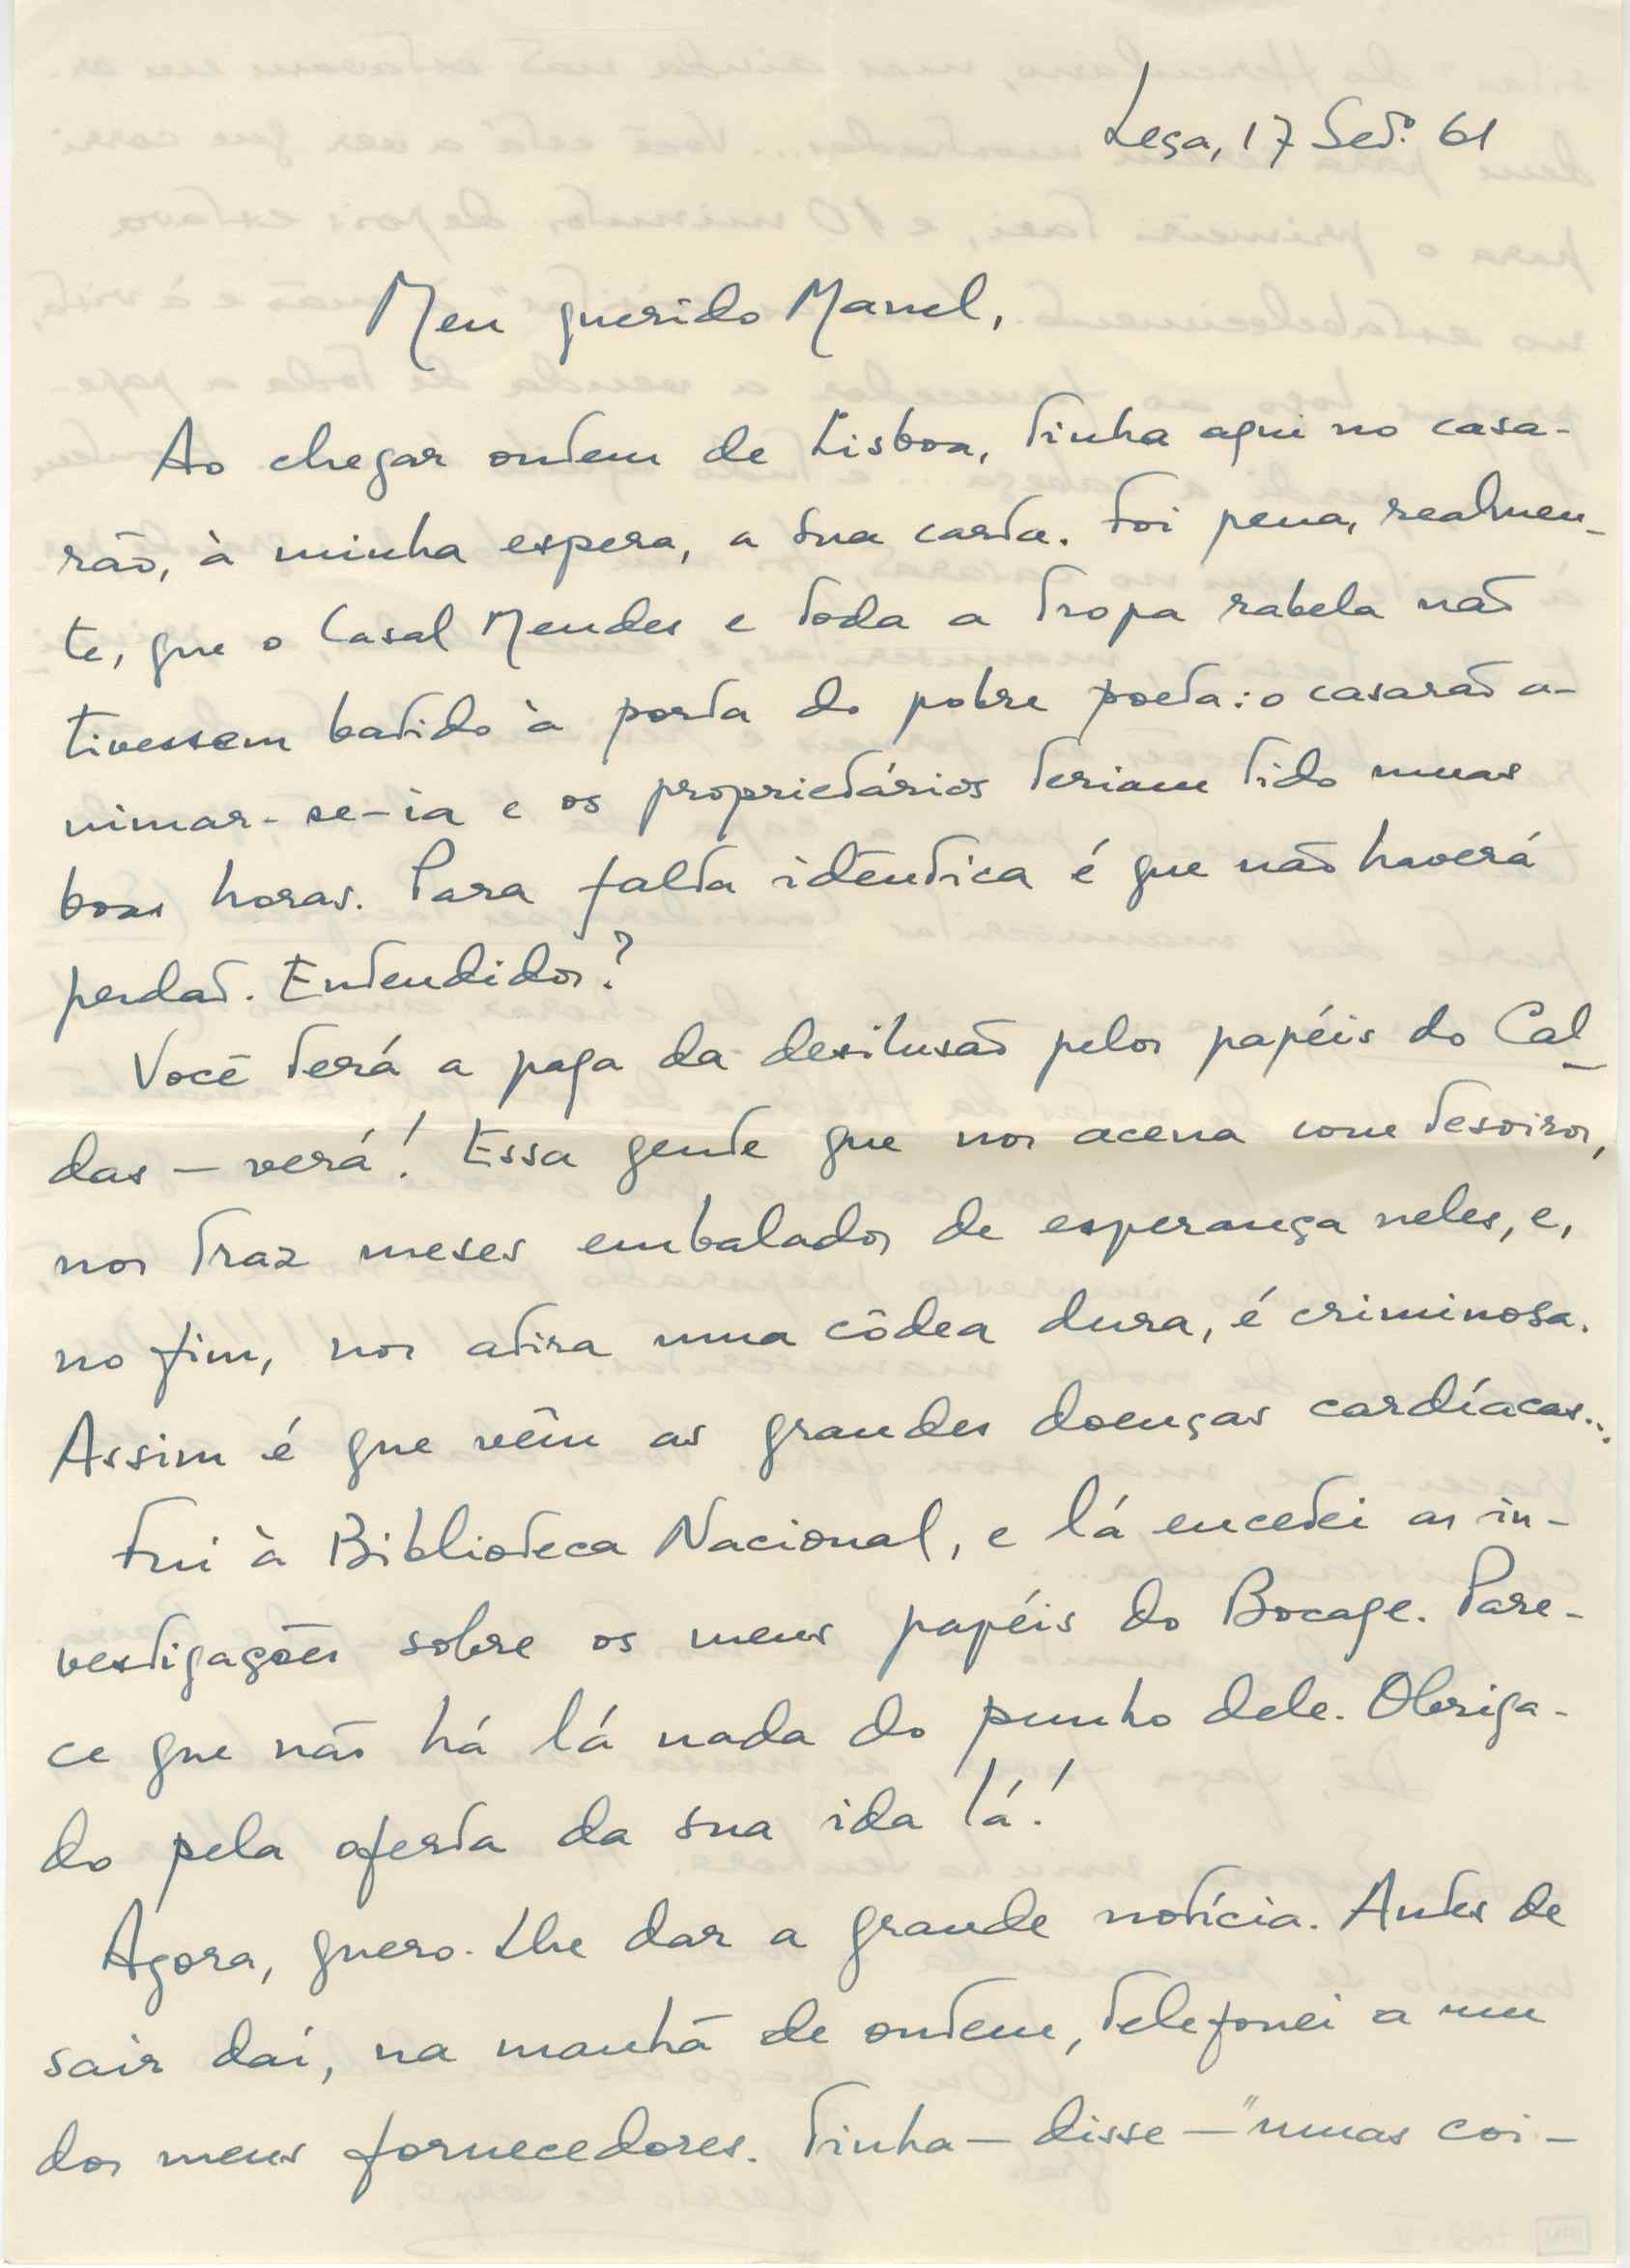 Leça, 17 Setº. 61
Meu querido Manel,
Ao chegar ontem de Lisboa, tinha aqui no casa-
rão, à minha espera, a sua carta. Foi pena, realmen-
te, que o Casal Mendes e toda a tropa rabela não
tivessem batido à porta do pobre poeta: o casarão a-
nimar-se-ia e os proprietários teriam tido umas
boas horas. Para falta idêntica é que não haverá
perdão. Entendidos?
Você terá a paga da desilusão pelos papéis do Cal-
das — verá! Essa gente que nos acena com tesoiros,
nos traz meses embalados de esperança neles, e,
no fim, nos atira uma côdea dura, é criminosa.
Assim é que vêm as grandes doenças cardíacas...
Fui à Biblioteca Nacional, e lá encetei as in-
vestigações sobre os meus papéis do Bocage. Pare-
ce que não há lá nada do punho dele. Obriga-
do pela oferta da sua ida lá!
Agora, quero-lhe dar a grande notícia. Antes de
sair daí, na manhã de ontem, telefonei a um
dos meus fornecedores. Tinha — disse — "umas coi-